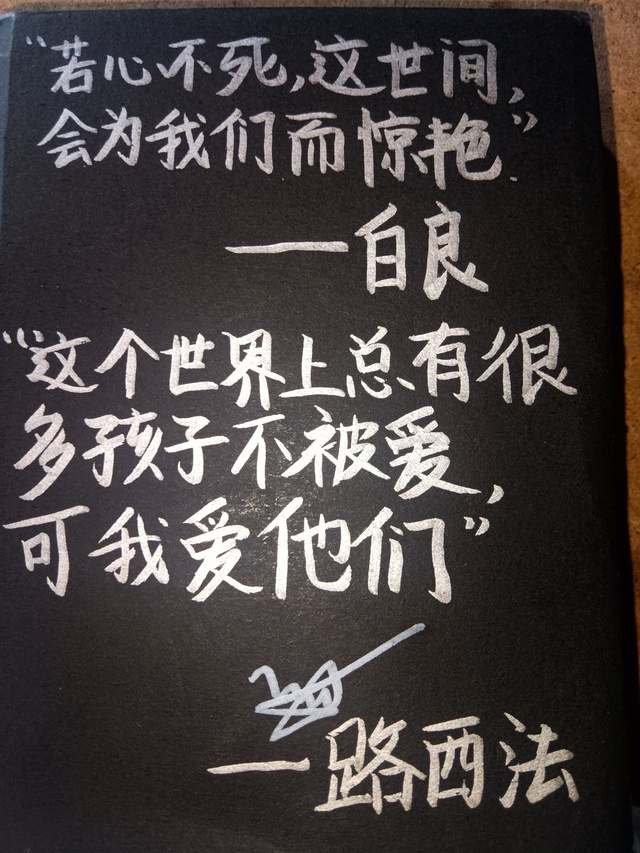 “若心不死,这世间,
会为我们而惊艳”.
——白良
“这个世界上总有很
多孩子不被爱,
可我爱他们”
—路西法